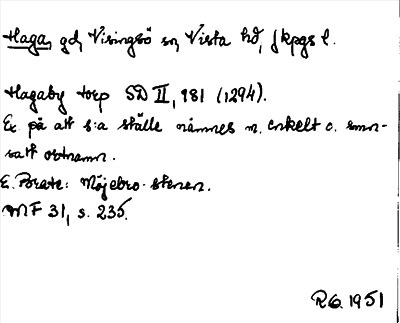 Haga, gd, Visingsö sn, Vista hd, Jkpgs l.
Hagaby torp SD II, 181 (1294).
Ex. på att s:a ställe nämnes m. enkelt o. smn-
satt ortnamn.
E. Brate: Möjebro-stenen.
ANF 31, s. 235.
RG. 1951